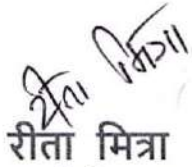 रीता मित्रा
रीता मित्रा